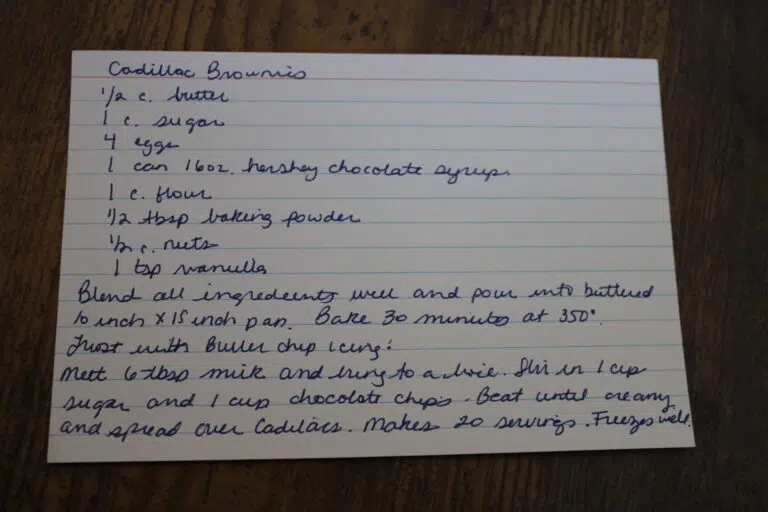 Cadillac Brownies
1/2 c. butter
1 c. sugar
4 eggs
1 can 16oz. hershey chocolate syrup.
1 c. flour
1/2 tbsp baking powder
1/2 c. nuts
1 tsp vanilla
Blend all ingredients well and pour into buttered
10 inch x 15 inch pan. Bake 30 minutes at 350°.
Frost with Butter chip icing:
Melt 6 tbsp milk and bring to a boil. Stir in 1 cup
sugar and 1 cup chocolate chips. Beat until creamy
and spread over Cadillacs. Makes 20 servings. Freezes well.